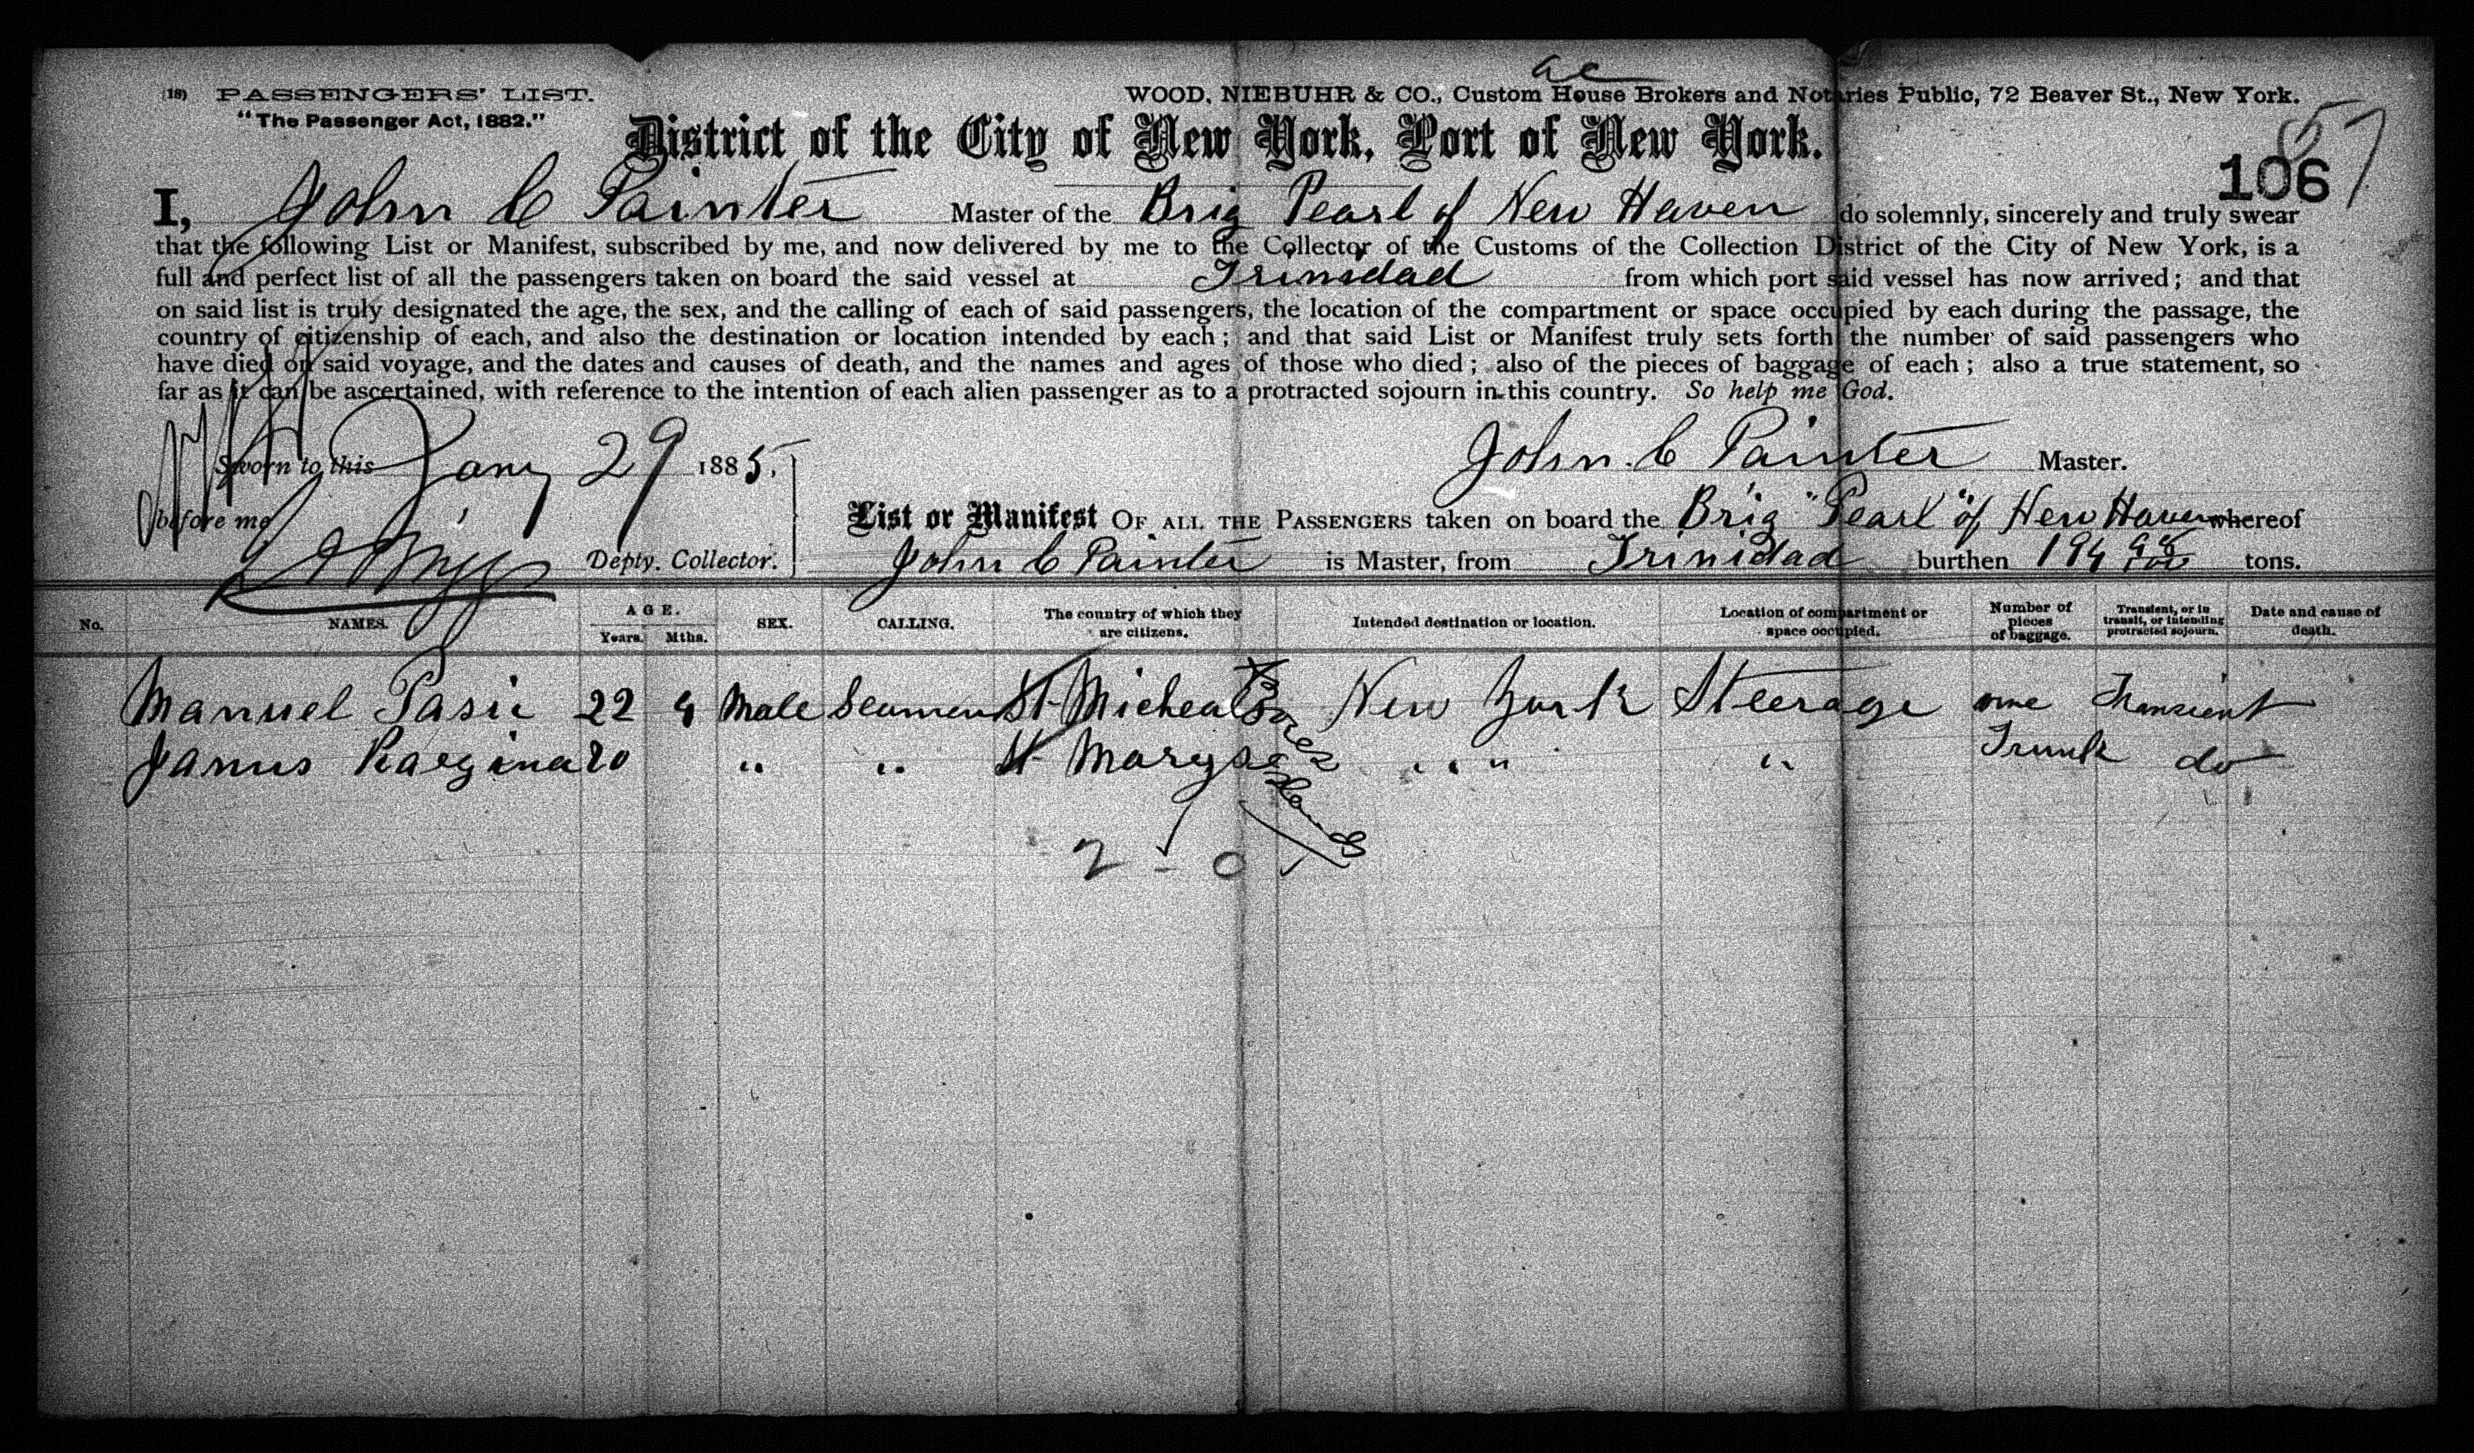 ac
(18) PASSENGERS' LIST. WOOD, NIEBUHR & CO., Custom House Brokers and Notaries Public, 72 Beaver St., New York.
"The Passenger Act, 1882."
57
District of the City of New York, Port of New York.
106
I, John C Painter Master of the Brig Pearl of New Haven do solemnly, sincerely and truly swear
that the following List or Manifest, subscribed by me, and now delivered by me to the Collector of the Customs of the Collection District of the City of New York, is a
full and perfect list of all the passengers taken on board the said vessel at Trinidad from which port said vessel has now arrived; and that
on said list is truly designated the age, the sex, and the calling of each of said passengers, the location of the compartment or space occupied by each during the passage, the
country of citizenship of each, and also the destination or location intended by each; and that said List or Manifest truly sets forth the number of said passengers who
have died on said voyage, and the dates and causes of death, and the names and ages of those who died; also of the pieces of baggage of each; also a true statement, so
far as it can be ascertained, with reference to the intention of each alien passenger as to a protracted sojourn in this country. So help me God.
Sworn to this Jany 29 1885, John C Painter Master.
before me
Depty. Collector.
List or Manifest OF ALL THE PASSENGERS taken on board the Brig "Pearl" of New Haven whereof
John C Painter is Master, from Trinidad burthen 194 98/100 tons.
No. NAMES. AGE. Years. Mths. SEX. CALLING. The country of which they are citizens. Intended destination or location. Location of compartment or space occupied. Number of pieces of baggage. Transient, or in transit, or intending protracted sojourn. Date and cause of death.
Manuel Pasie 22 4 Male Seamen St Micheal New York Steerage one Transient
James Raegina 20 " " St Marys " " " Trunk do
2 - 0